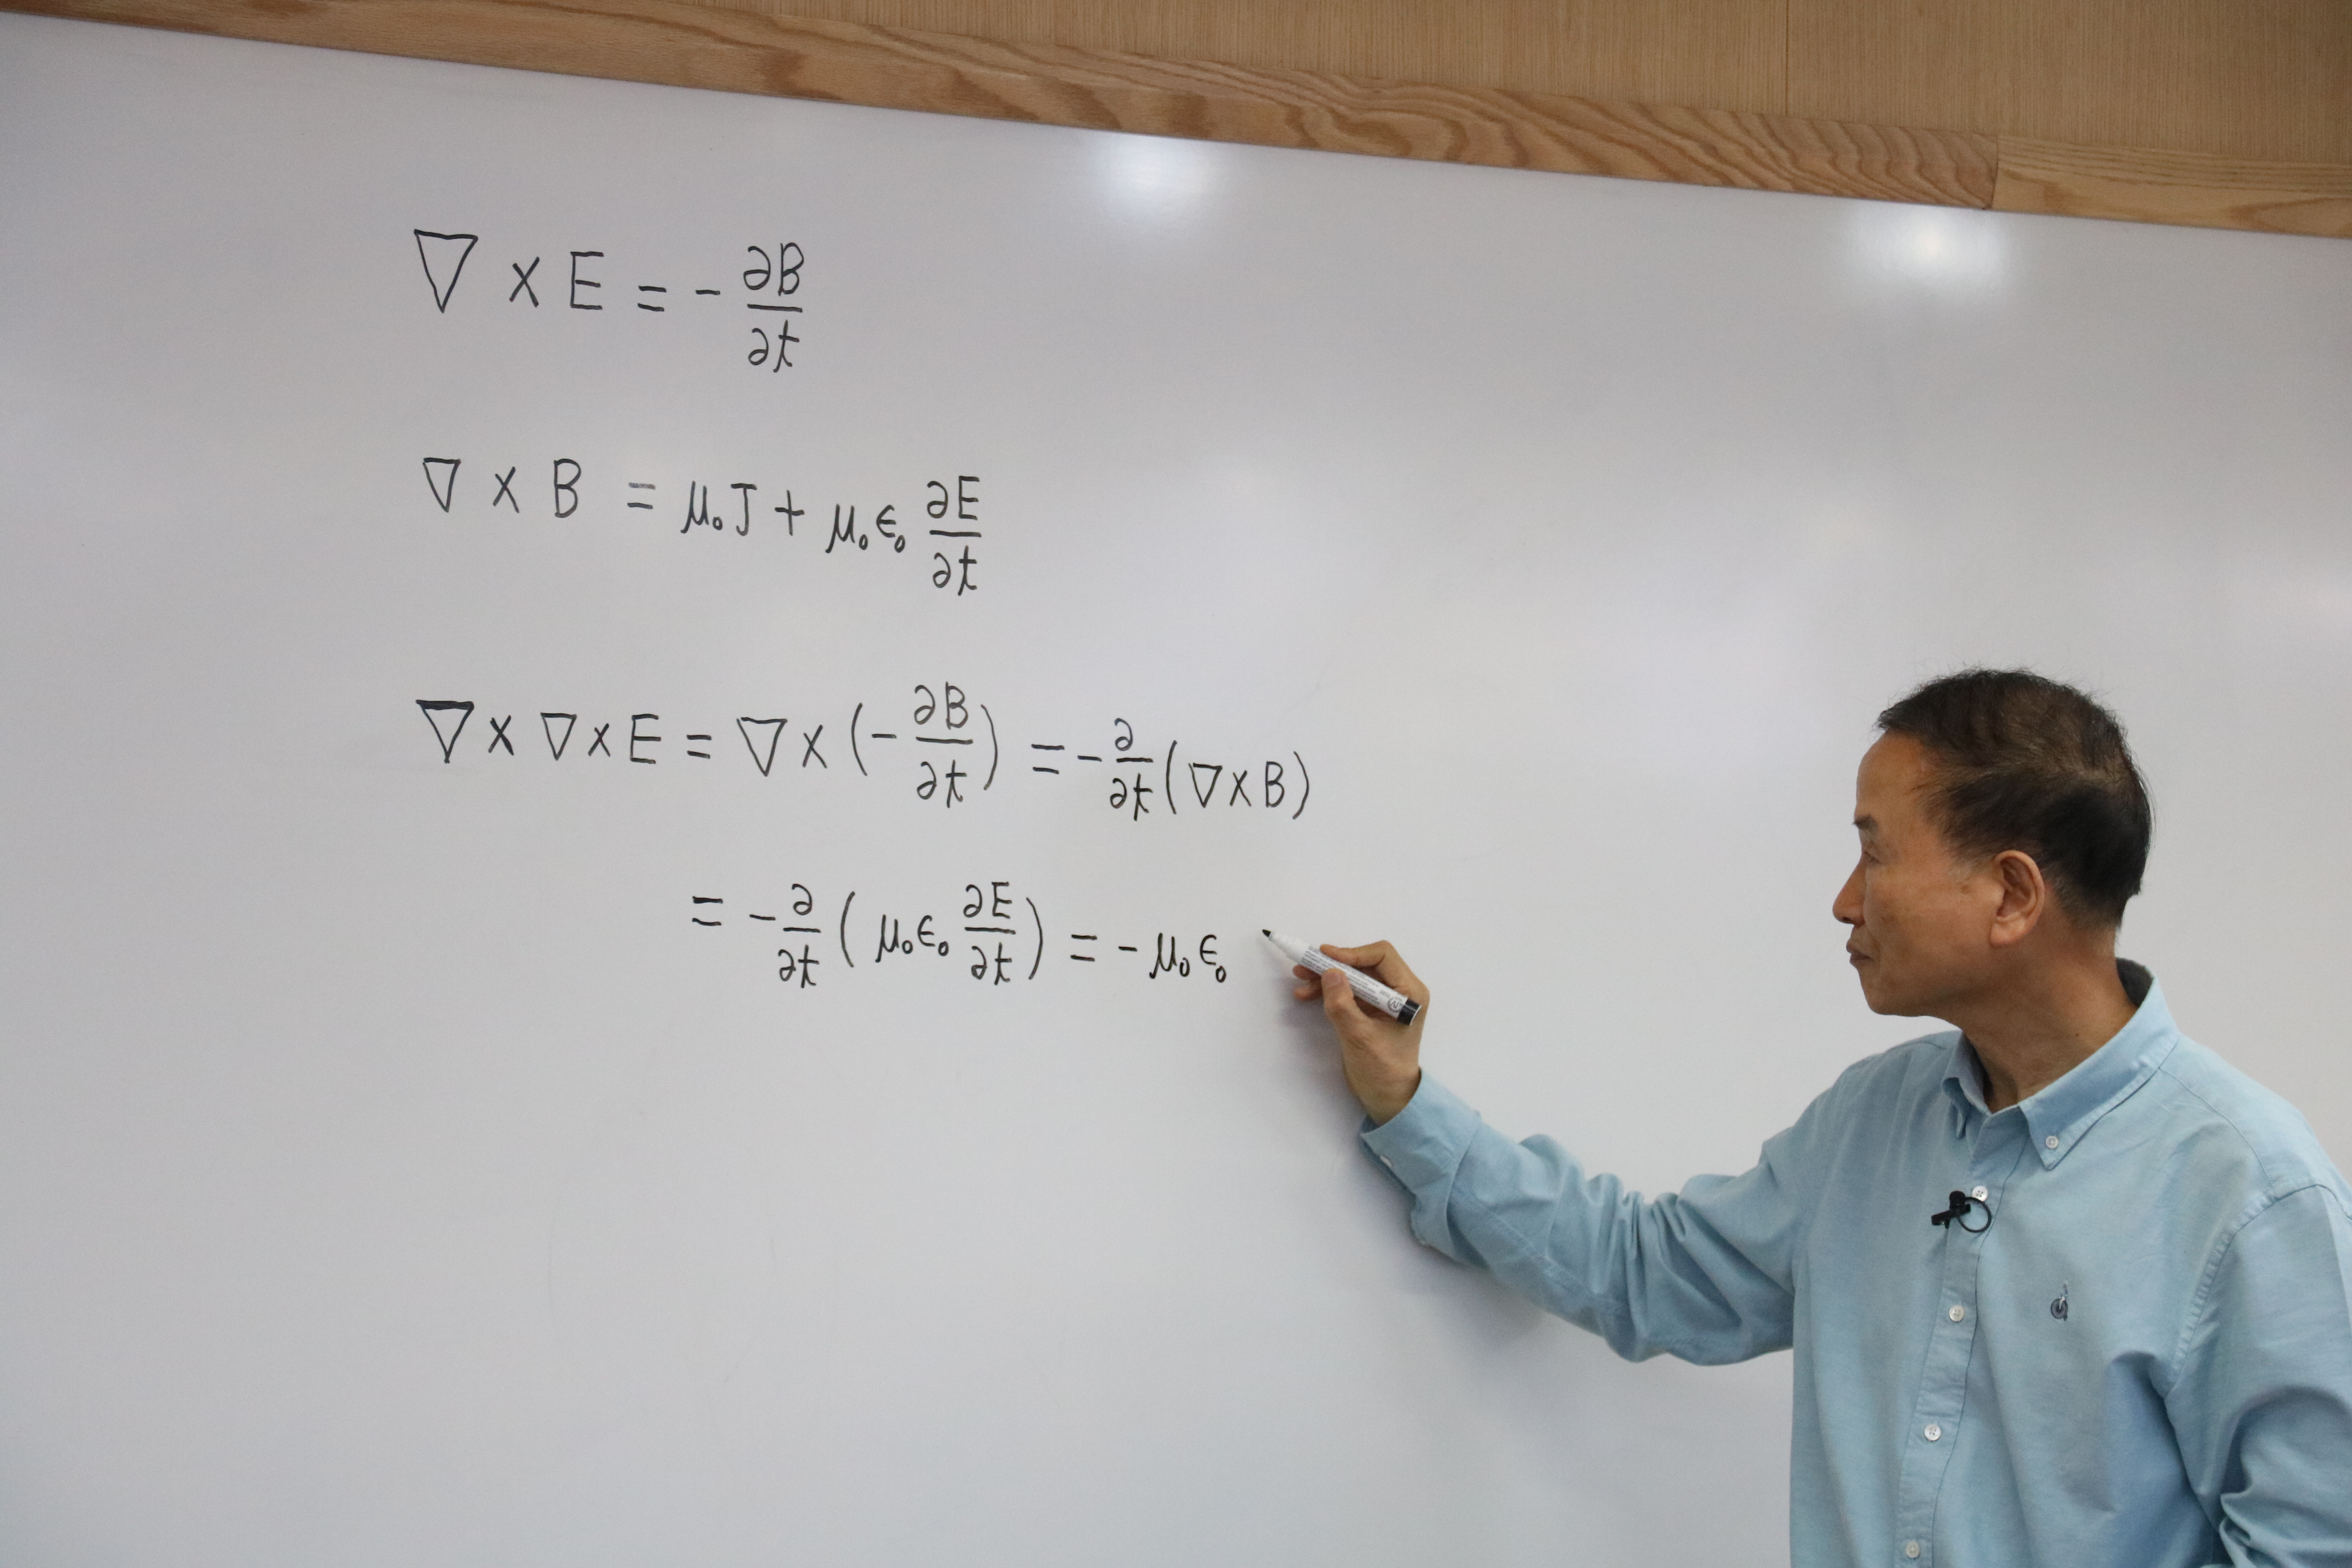 ∇ × E = - ∂B/∂t
∇ × B = μ₀J + μ₀ϵ₀ ∂E/∂t
∇ × ∇ × E = ∇ × (- ∂B/∂t) = - ∂/∂t (∇ × B)
= - ∂/∂t (μ₀ϵ₀ ∂E/∂t) = - μ₀ϵ₀